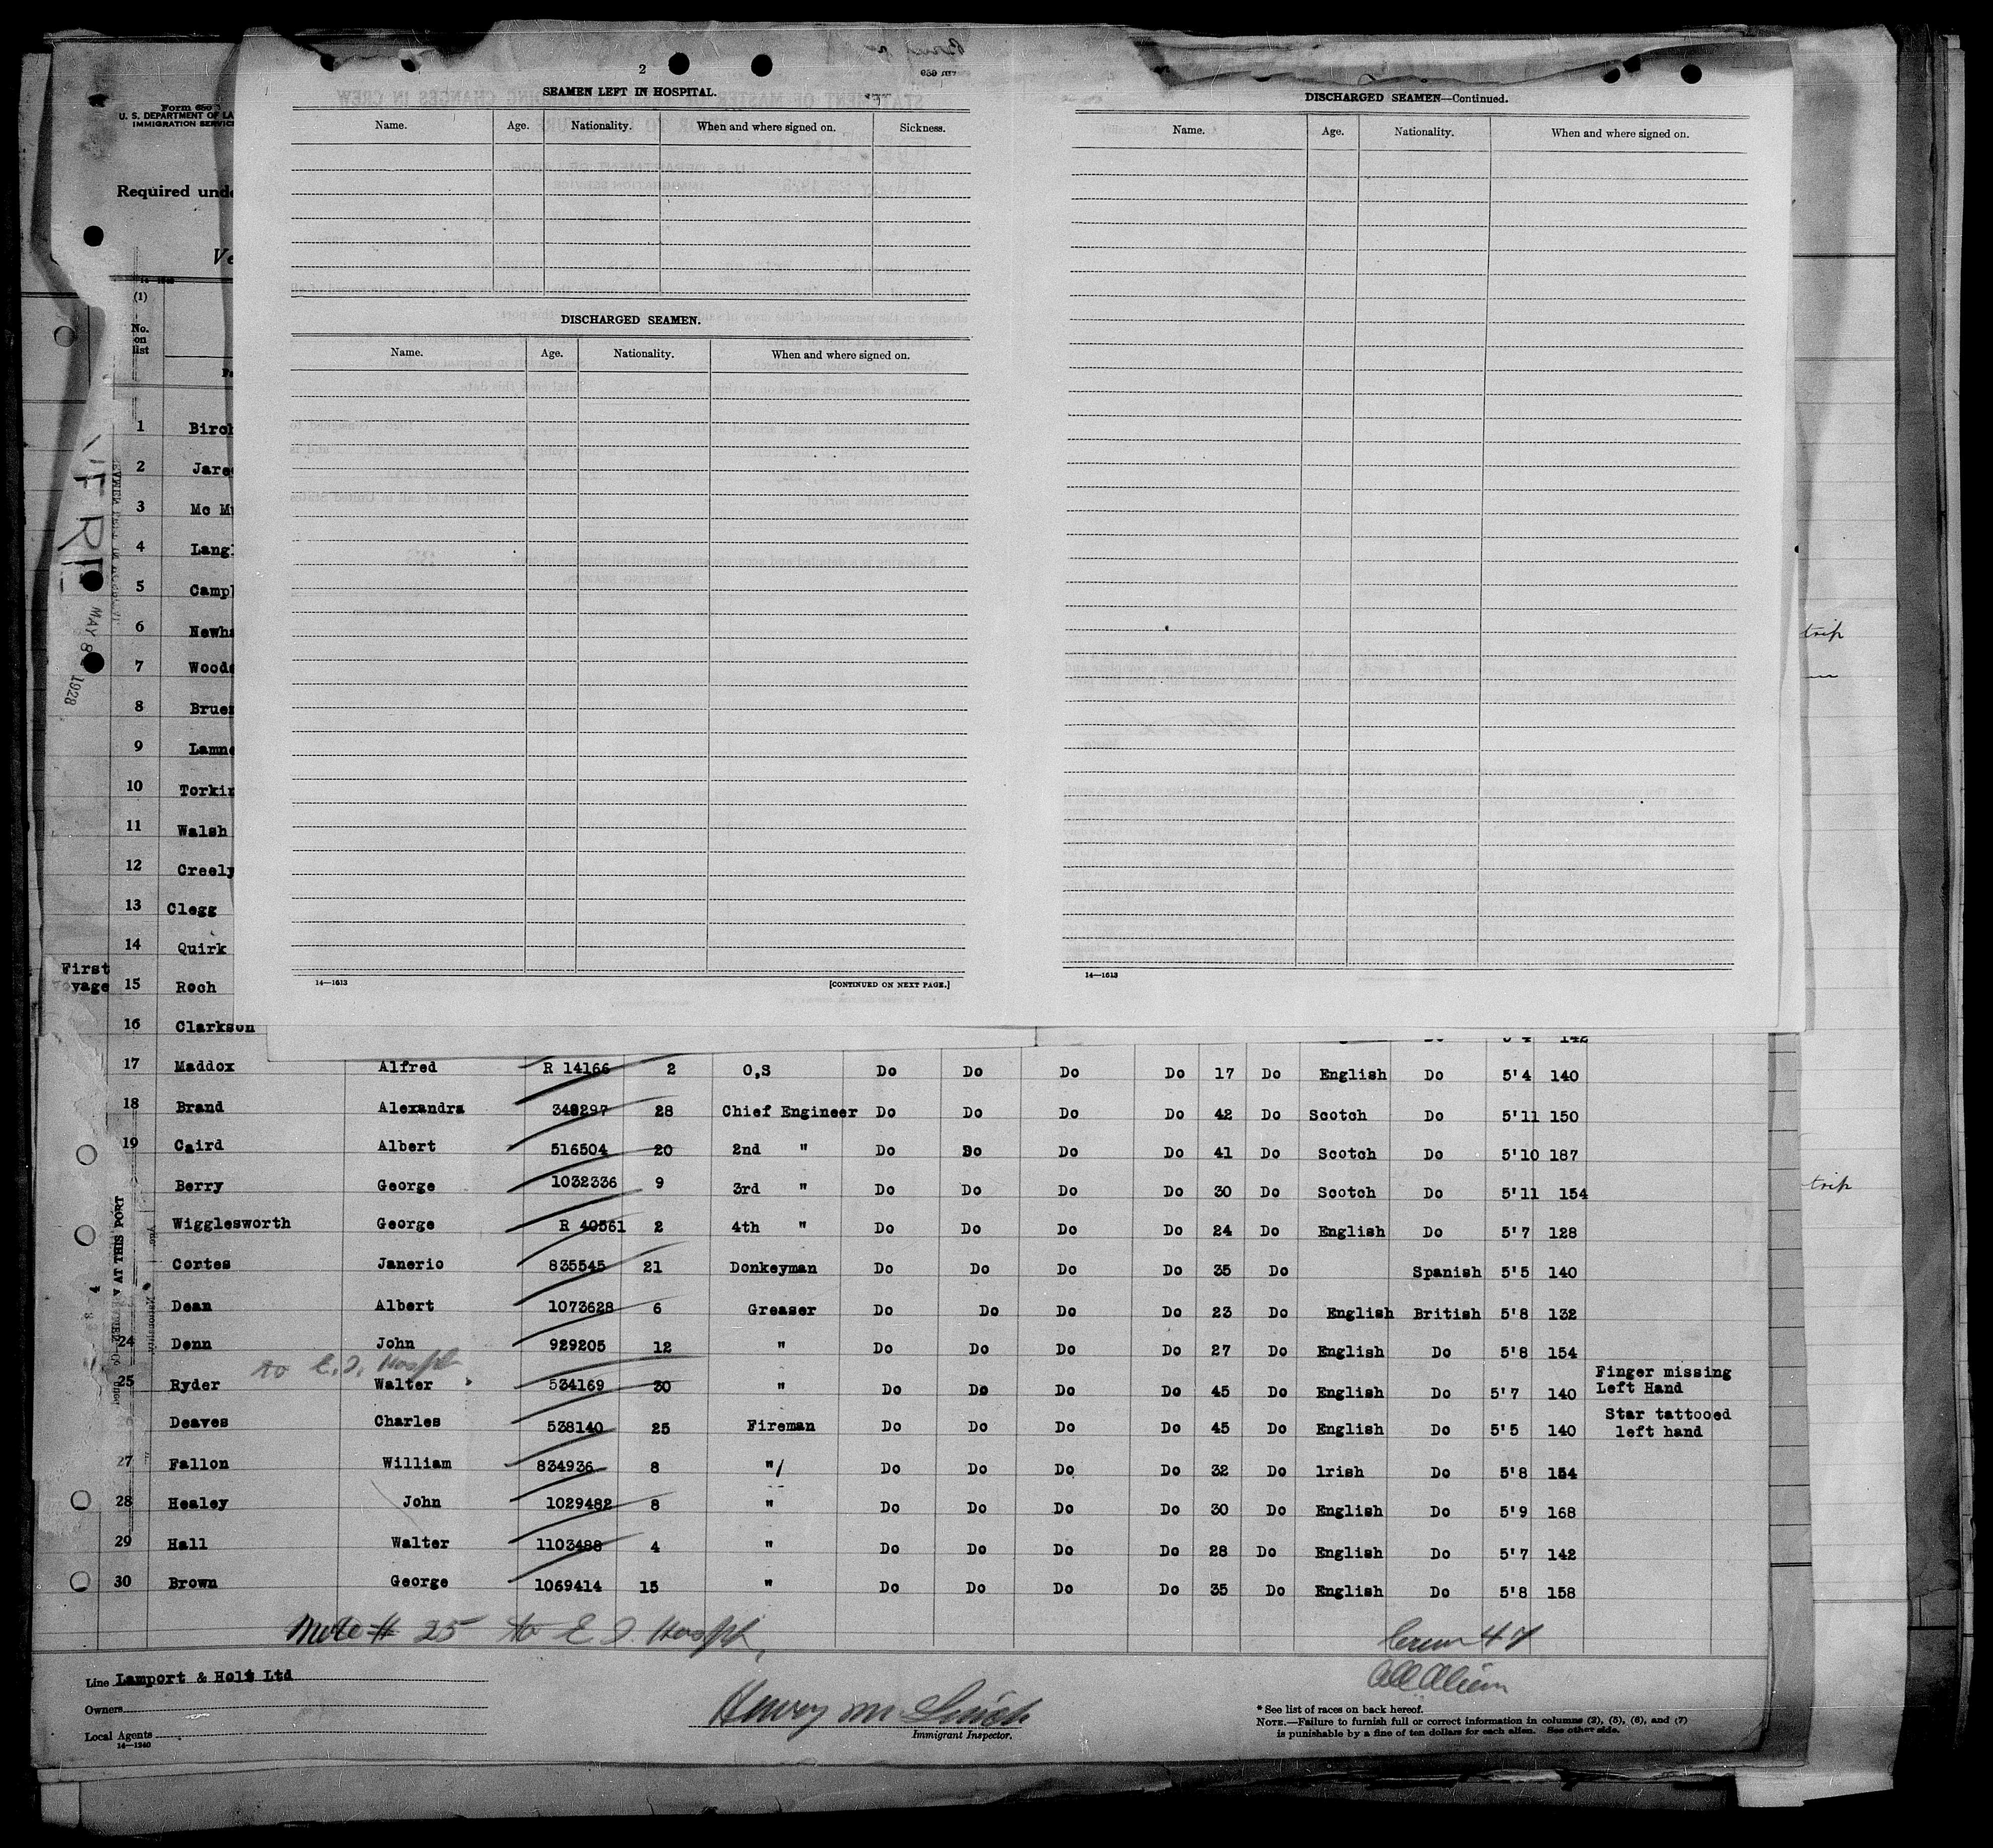 2
SEAMEN LEFT IN HOSPITAL.
Name. Age. Nationality. When and where signed on. Sickness.
DISCHARGED SEAMEN.
Name. Age. Nationality. When and where signed on.
14—1613 [CONTINUED ON NEXT PAGE.]
DISCHARGED SEAMEN—Continued.
Name. Age. Nationality. When and where signed on.
14—1613
Form 680
U. S. DEPARTMENT OF LA
IMMIGRATION SERVIC
Required unde
Ve
(1)
No.
on
list
MAY 8 1928
1 Birch
2 Jare
3 Mc M
4 Lang
5 Camp
6 Newha
7 Woods
8 Brue
9 Lamne
10 Torkin
11 Walsh
12 Creely
13 Clegg
14 Quirk
First
yage 15 Roch
16 Clarkson 5'4 142
17 Maddox Alfred R 14166 2 O,S Do Do Do Do 17 Do English Do 5'4 140
18 Brand Alexandra 349297 28 Chief Engineer Do Do Do Do 42 Do Scotch Do 5'11 150
19 Caird Albert 516504 20 2nd " Do Do Do Do 41 Do Scotch Do 5'10 187
Berry George 1032336 9 3rd " Do Do Do Do 30 Do Scotch Do 5'11 154
Wigglesworth George R 40561 2 4th " Do Do Do Do 24 Do English Do 5'7 128
Cortes Janerio 835545 21 Donkeyman Do Do Do Do 35 Do Spanish 5'5 140
Dean Albert 1073628 6 Greaser Do Do Do Do 23 Do English British 5'8 132
24 Denn John 929205 12 " Do Do Do Do 27 Do English Do 5'8 154
to E.I. Hosptl
25 Ryder Walter 534169 30 " Do Do Do Do 45 Do English Do 5'7 140 Finger missing
Left Hand
26 Deaves Charles 538140 25 Fireman Do Do Do Do 45 Do English Do 5'5 140 Star tattooed
left hand
27 Fallon William 834936 8 "/ Do Do Do Do 32 Do lrish Do 5'8 154
28 Healey John 1029482 8 " Do Do Do Do 30 Do English Do 5'9 168
29 Hall Walter 1103488 4 " Do Do Do Do 28 Do English Do 5'7 142
30 Brown George 1069414 15 " Do Do Do Do 35 Do English Do 5'8 158
Note # 25 to E I. Hosptl,
Crew 47
All Alien
V AT THIS PORT
trip
trip
Line Lamport & Holt Ltd
Owners
Local Agents
14—1240
Immigrant Inspector.
* See list of races on back hereof.
NOTE.—Failure to furnish full or correct information in columns (2), (5), (6), and (7)
is punishable by a fine of ten dollars for each alien. See other side.